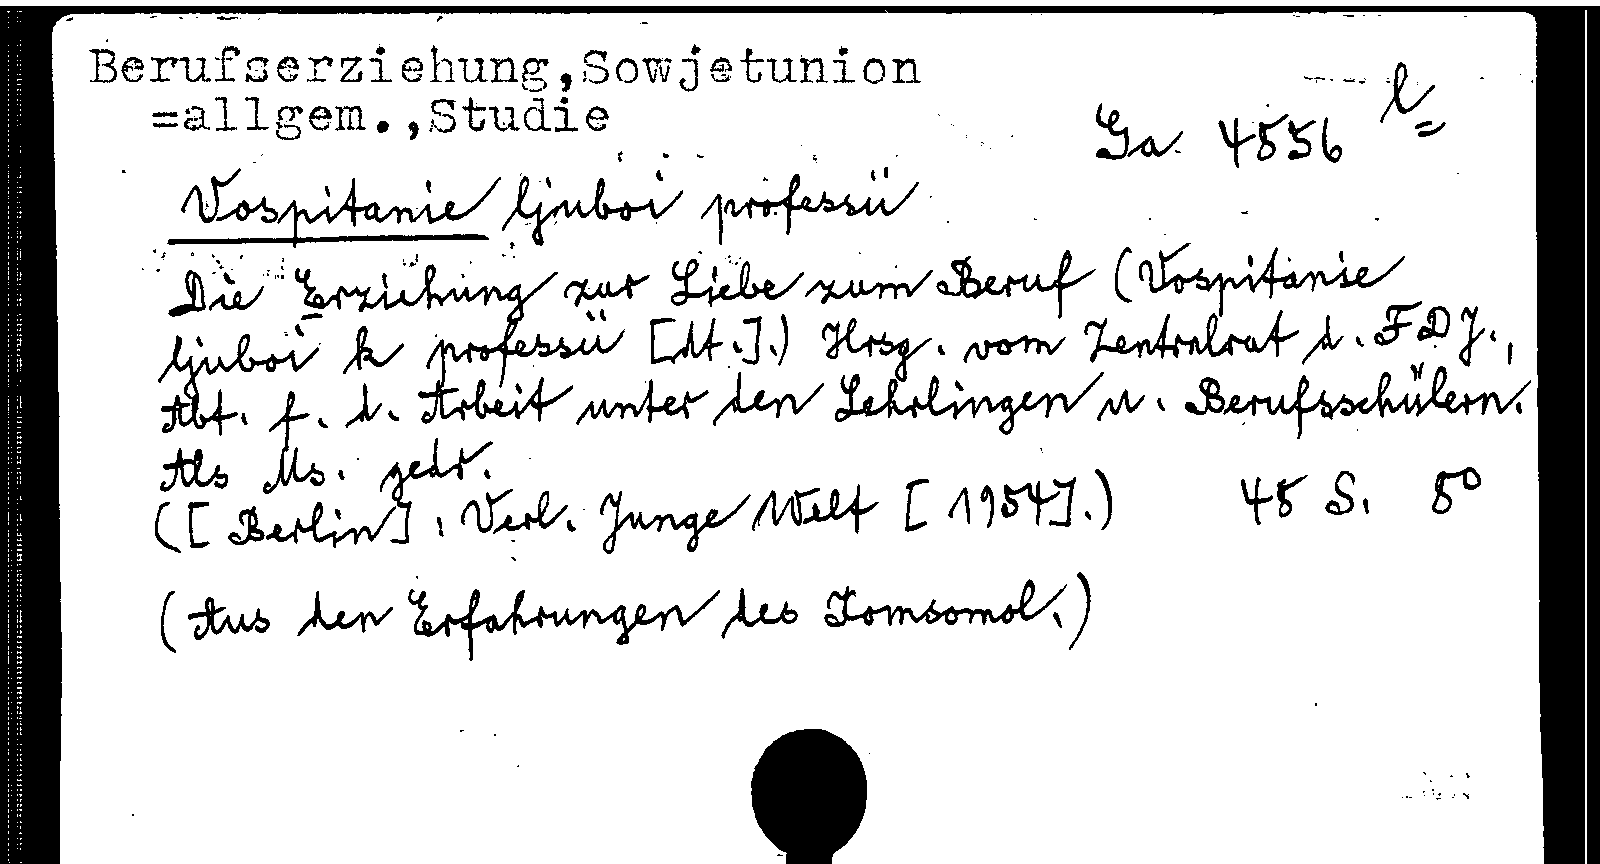 Berufserziehung,Sowjetunion
=allgem.,Studie
Ga 4556 l
Vospitanie ljuboi professii
Die Erziehung zur Liebe zum Beruf (Vospitanie
ljuboi k professii [dt.].) Hrsg. vom Zentralrat d. FDJ.,
Abt. f. d. Arbeit unter den Lehrlingen u. Berufsschülern.
Als Ms. gedr.
([Berlin]: Verl. Junge Welt [1954].) 48 S. 8°
(Aus den Erfahrungen des Komsomol.)